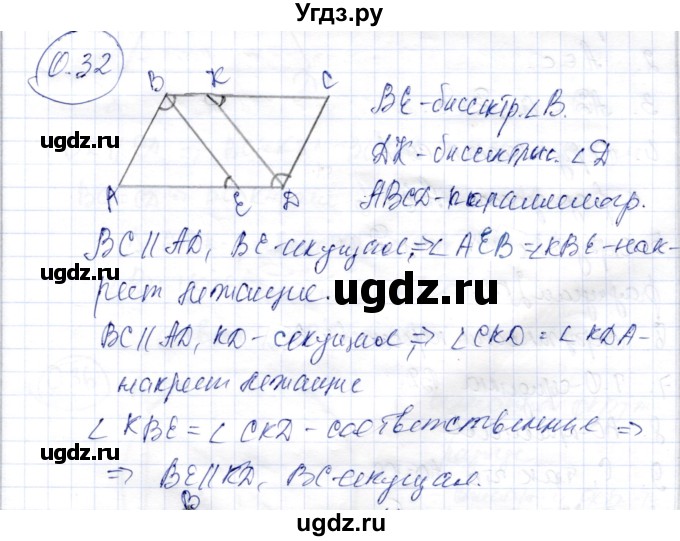 Угдз.ру
0.32
B K C
A E D
BE-биссектр. ∠B.
DK-биссектрис. ∠D
ABCD-параллелогр.
BC∥AD, BE-секущая, ⇒ ∠AEB=∠KBE-нак-
рест лежащие.
BC∥AD, KD-секущая, ⇒ ∠CKD=∠KDA-
накрест лежащие
∠KBE=∠CKD-соответственные ⇒
⇒ BE∥KD, BC-секущая.
ugdz.ru
ugdz.ru
ugdz.ru
ugdz.ru
ugdz.ru
ugdz.ru
ugdz.ru
ugdz.ru